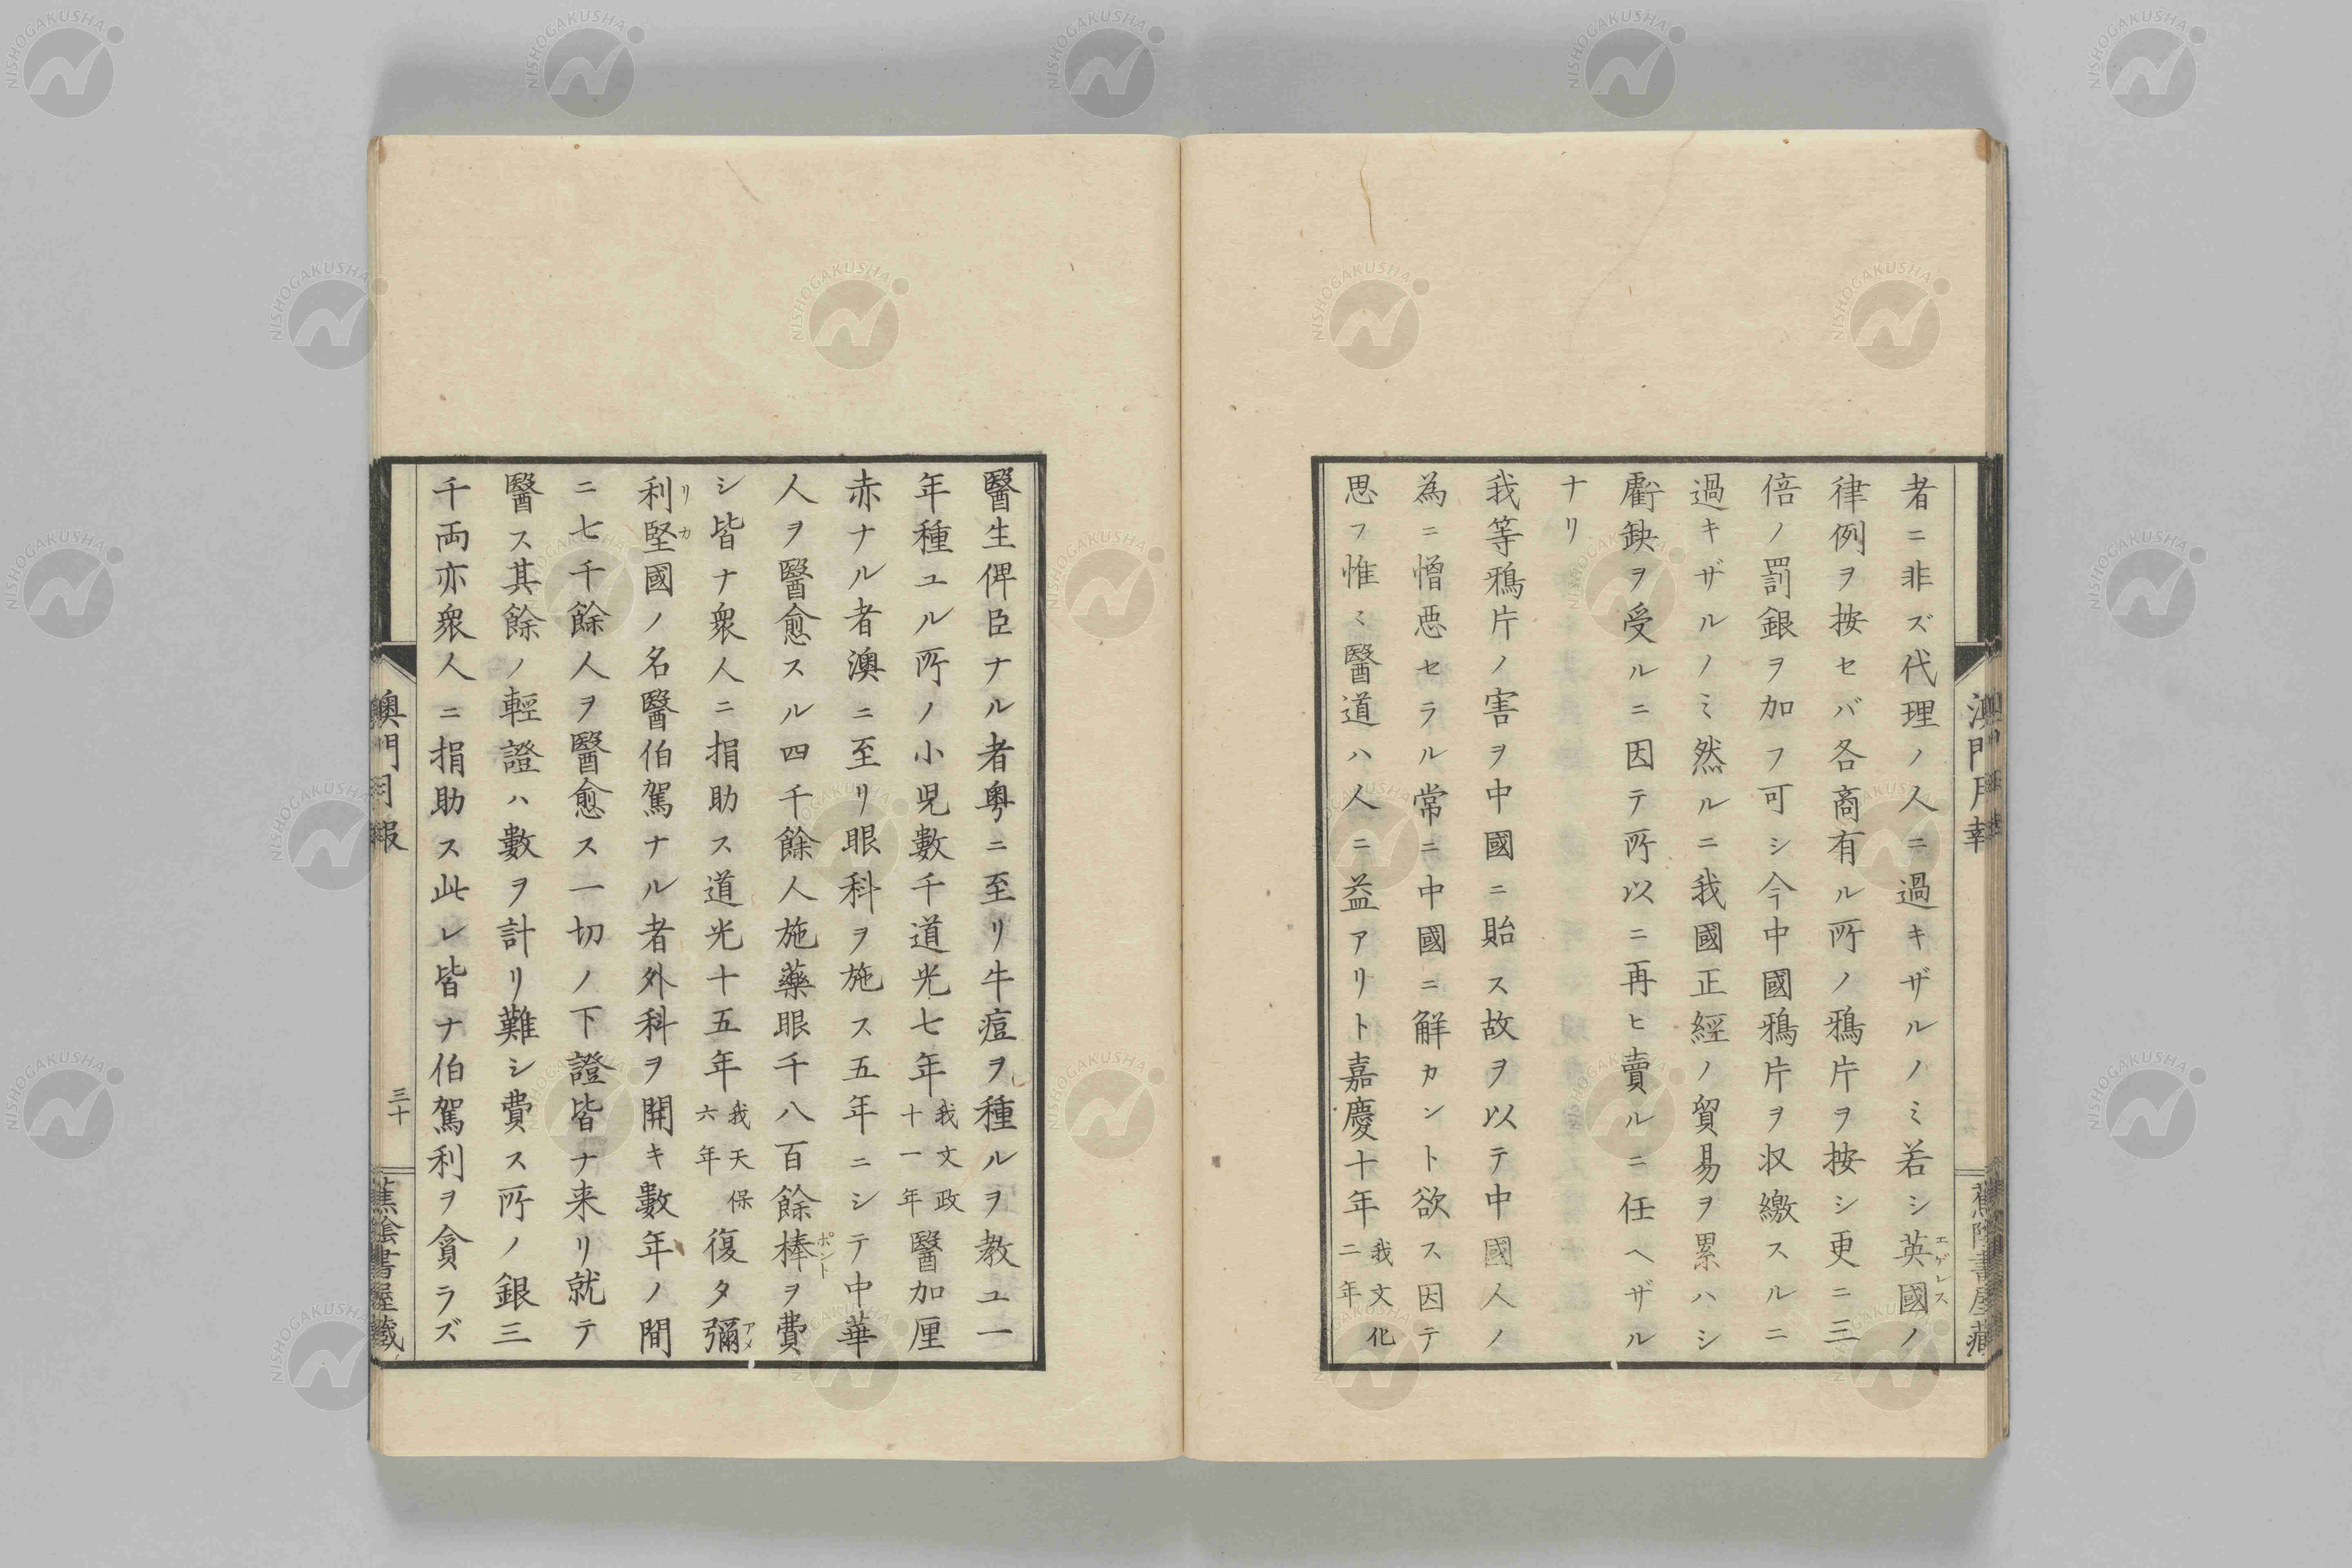 者ニ非ズ代理ノ人ニ過キザルノミ若シ英國ノ
エゲレス
律例ヲ按セバ各商有ル所ノ鴉片ヲ按シ更ニ三
倍ノ罰銀ヲ加フ可シ今中國鴉片ヲ収繳スルニ
過キザルノミ然ルニ我國正經ノ貿易ヲ累ハシ
虧缺ヲ受ルニ因テ所以ニ再ヒ賣ルニ任ヘザル
ナリ
我等鴉片ノ害ヲ中國ニ貽ス故ヲ以テ中國人ノ
為ニ憎悪セラル常ニ中國ニ解カント欲ス因テ
思フ惟ミ醫道ハ人ニ益アリト嘉慶十年
我文化
二年
醫生俾臣ナル者粤ニ至リ牛痘ヲ種ルヲ教ユ一
年種ユル所ノ小児數千道光七年
我文政
十一年
醫加厘
赤ナル者澳ニ至リ眼科ヲ施ス五年ニシテ中華
人ヲ醫愈スル四千餘人施藥眼千八百餘棒ヲ費
ポント
シ皆ナ衆人ニ捐助ス道光十五年
我天保
六年
復タ彌
アメ
利堅國ノ名醫伯駕ナル者外科ヲ開キ數年ノ間
リカ
ニ七千餘人ヲ醫愈ス一切ノ下證皆ナ来リ就テ
醫ス其餘ノ輕證ハ數ヲ計リ難シ費ス所ノ銀三
千両亦衆人ニ捐助ス此レ皆ナ伯駕利ヲ貪ラズ
澳門月報
三十
蕉陰書屋藏
NISHOGAKUSHA